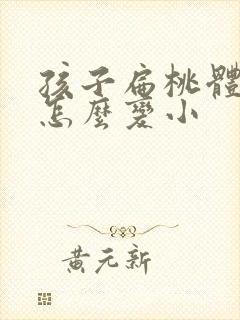 孩子扁桃體
怎麼變小
黃元新